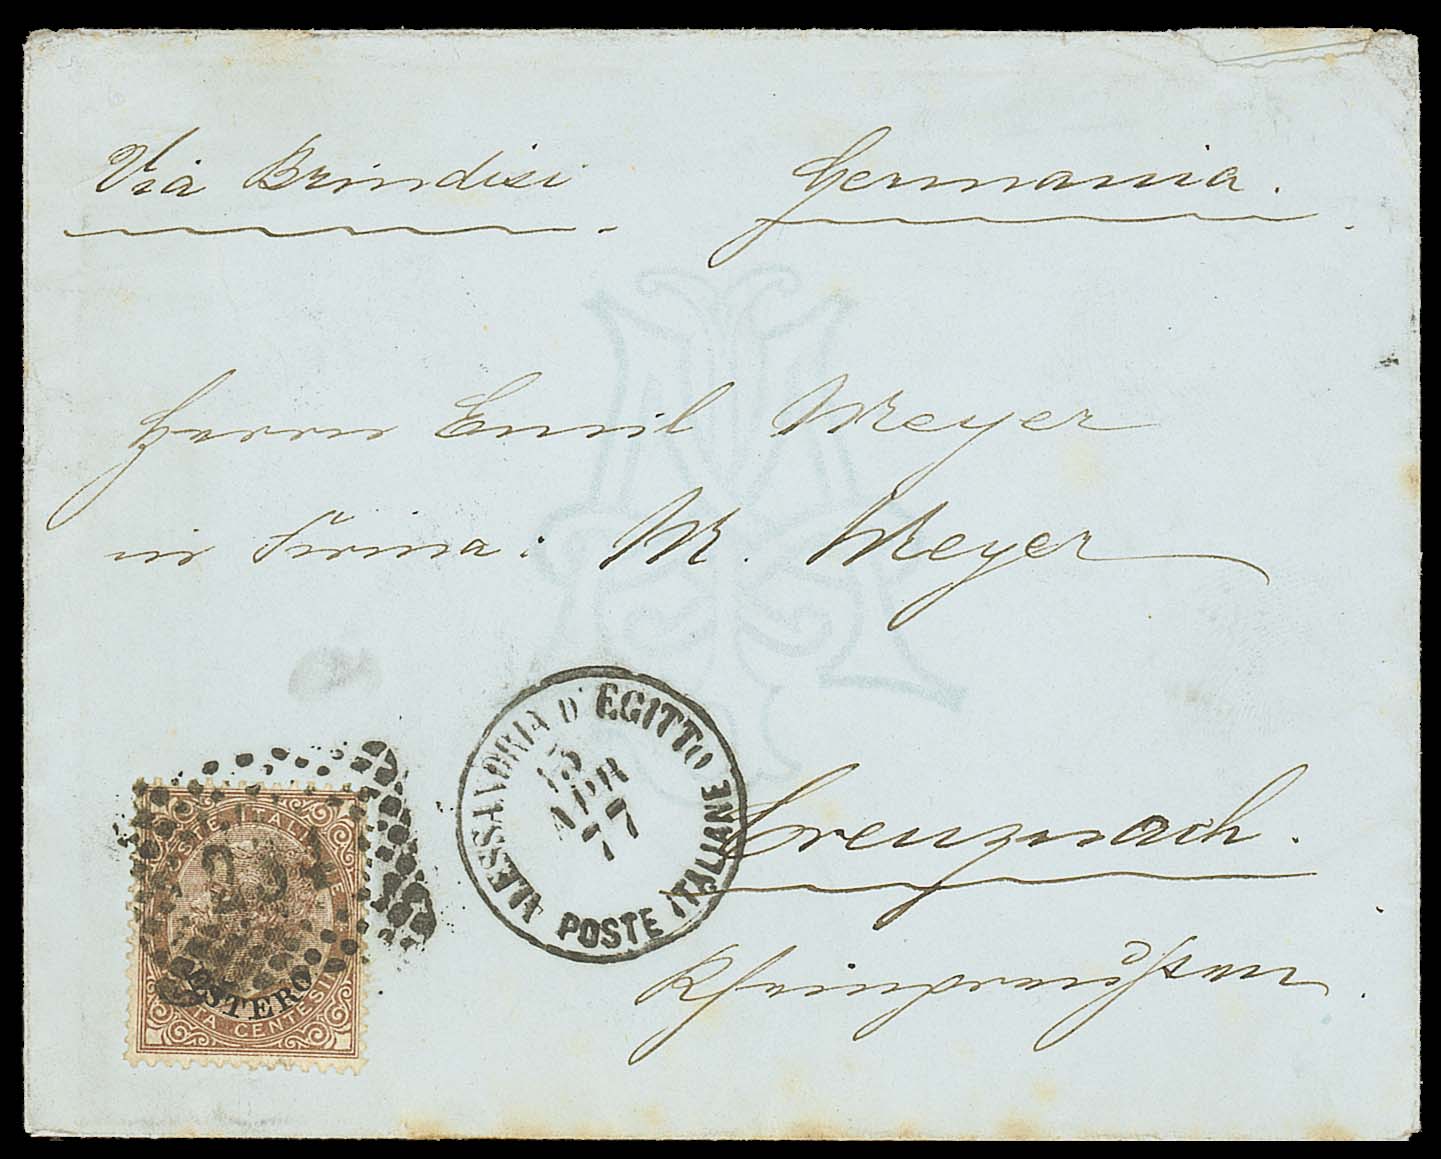 Via Brindisi Germania.
Herrn Emil Meyer
in Firma: M. Meyer
Creuznach.
Rheinpreußen.
ALESSANDRIA D'EGITTO
POSTE ITALIANE
APR
77
POSTE ITALIANE
234
ESTERO
TA CENTESIMI